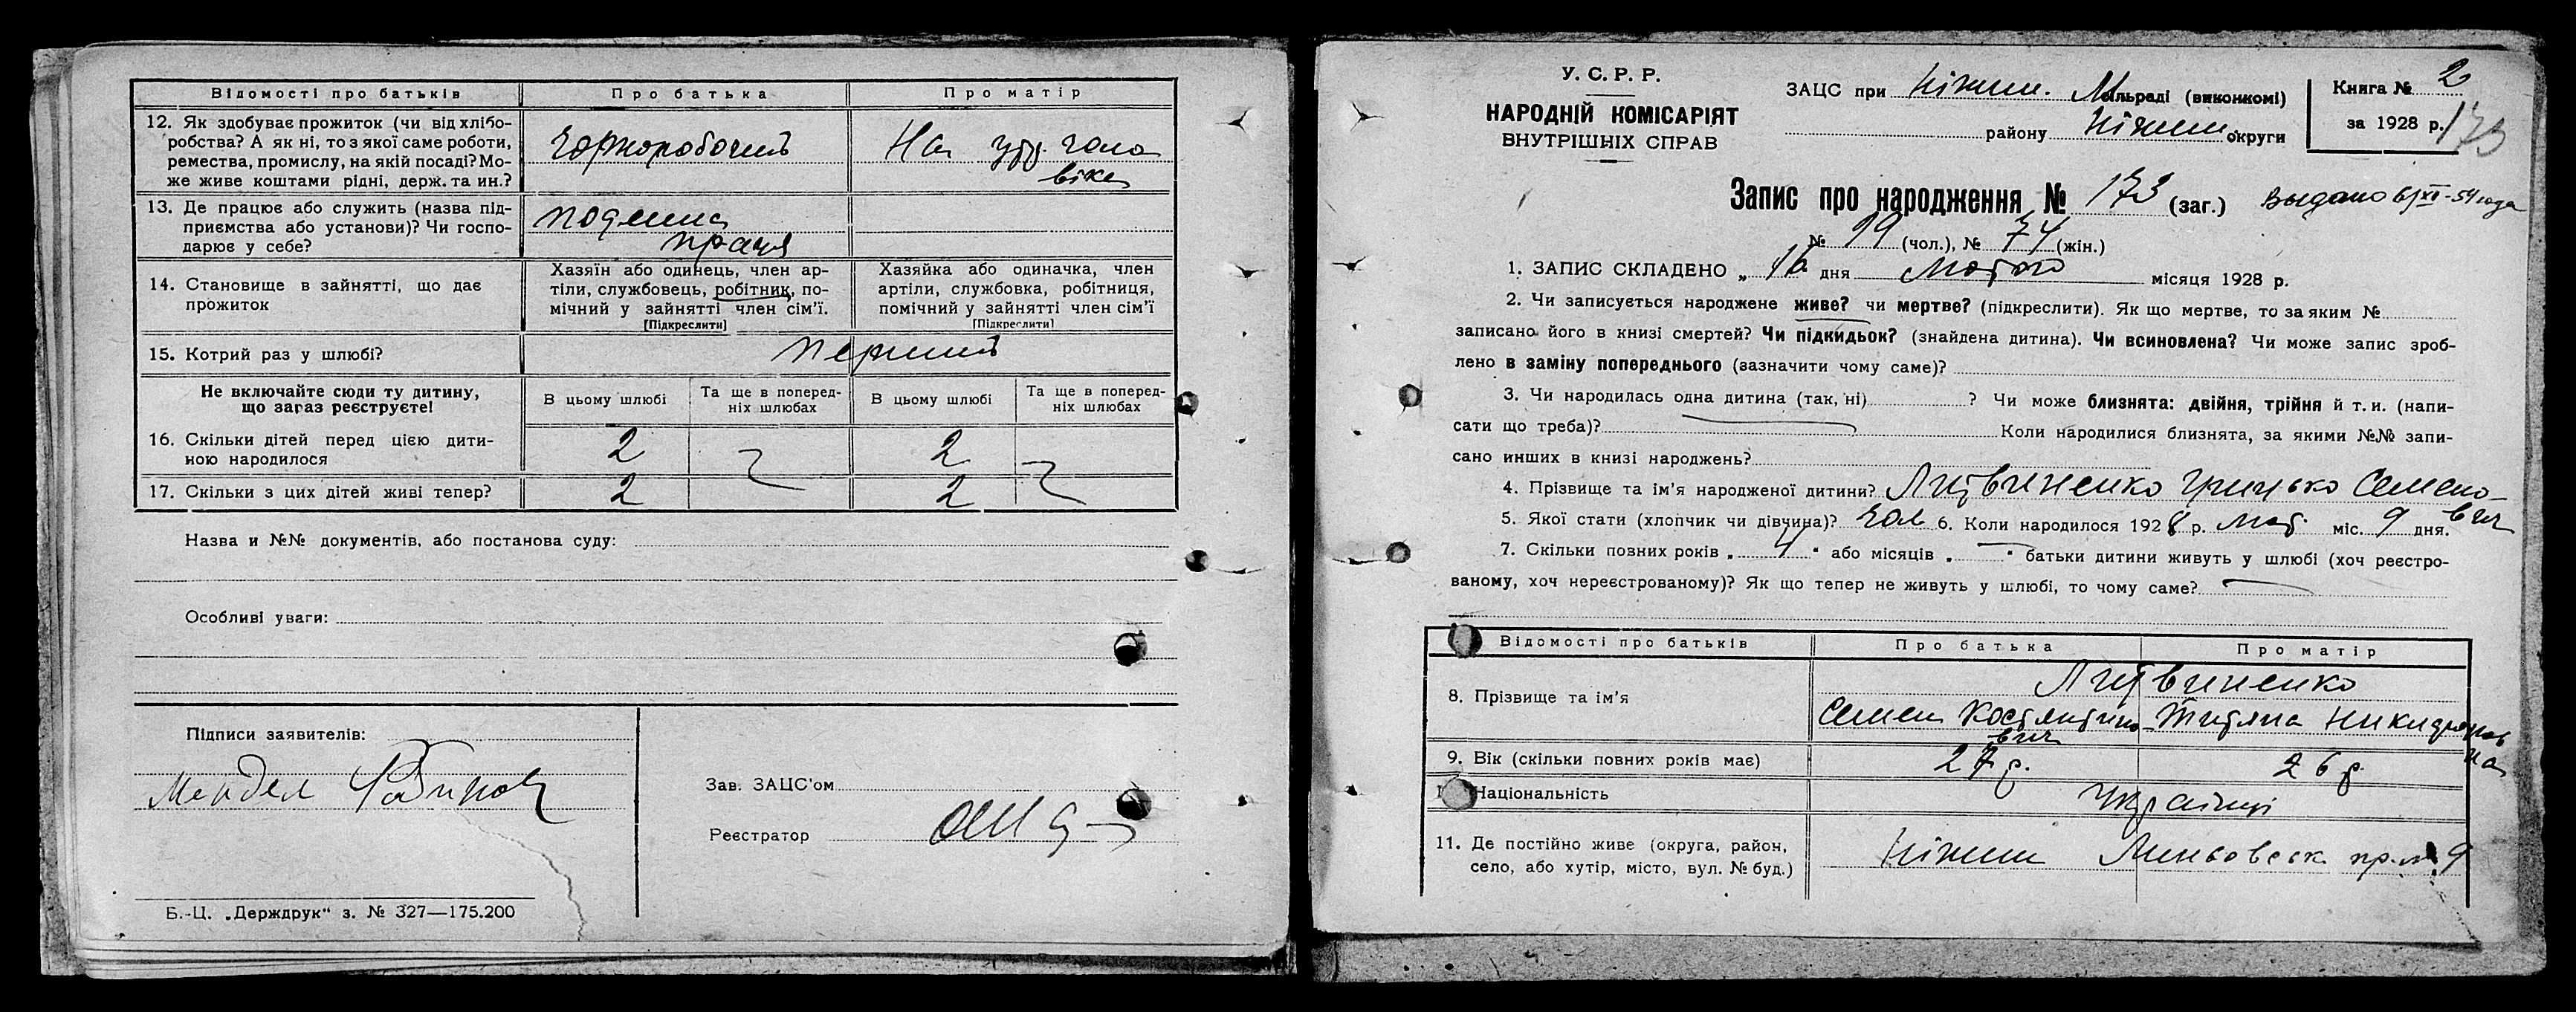 Відомості про батьків Про батька Про матір
12. Як здобуває прожиток (чи від хлібо-
робства? А як ні, то з якої саме роботи,
ремества, промислу, на якій посаді? Мо-
же живе коштами рідні, держ. та ин.?
Чорноробочий
На утр. чоло
віка
13. Де працює або служить (назва під-
приємства або установи)? Чи госпо-
дарює у себе?
подення
праця
14. Становище в зайнятті, що дає
прожиток
Хазяїн або одинець, член ар-
тіли, службовець, робітник, по-
мічний у зайнятті член сім'ї.
[Підкреслити]
Хазяйка або одиначка, член
артіли, службовка, робітниця,
помічний у зайнятті член сім'ї
[Підкреслити]
15. Котрий раз у шлюбі? перший
Не включайте сюди ту дитину,
що зараз реєструєте!
В цьому шлюбі
Та ще в поперед-
ніх шлюбах
В цьому шлюбі
Та ще в поперед-
ніх шлюбах
16. Скільки дітей перед цією дити-
ною народилося
2 2
17. Скільки з цих дітей живі тепер? 2 2
Назва и №№ документів, або постанова суду:
Особливі уваги:
Підписи заявителів:
Мендел
Зав. ЗАЦС'ом
Реєстратор
Б.-Ц. „Держдрук" з. № 327—175.200
У. С. Р. Р.
НАРОДНІЙ КОМІСАРІЯТ
ВНУТРІШНІХ СПРАВ
ЗАЦС при Ніжин. М сільраді (виконкомі)
району Ніжин. округи
Книга № 2
за 1928 р.
173
Запис про народження № 173 (заг.)
Выдано 6/XI-54 года
№ 99 (чол.), № 74 (жін.)
1. ЗАПИС СКЛАДЕНО „ 16 дня Лютого місяця 1928 р.
2. Чи записується народжене живе? чи мертве? (підкреслити). Як що мертве, то за яким №
записано його в книзі смертей? Чи підкидьок? (знайдена дитина). Чи всиновлена? Чи може запис зроб-
лено в заміну попереднього (зазначити чому саме)?
3. Чи народилась одна дитина (так, ні) ? Чи може близнята: двійня, трійня й т. и. (напи-
сати що треба)? Коли народилися близнята, за якими №№ запи-
сано инших в книзі народжень?
4. Прізвище та ім'я народженої дитини? Литвиненко Грицько Семено-
вич
5. Якої стати (хлопчик чи дівчина)? чол 6. Коли народилося 1928 р. лют. міс. 9 дня.
7. Скільки повних років „ 4 " або місяців „ " батьки дитини живуть у шлюбі (хоч реєстро-
ваному, хоч нереєстрованому)? Як що тепер не живуть у шлюбі, то чому саме?
Відомості про батьків Про батька Про матір
8. Прізвище та ім'я
Литвиненко
Семен Костянтино-
вич
Титяна Никифоров
на
9. Вік (скільки повних років має) 27 р. 26 р.
Національність Українці
11. Де постійно живе (округа, район,
село, або хутір, місто, вул. № буд.)
Ніжин 9